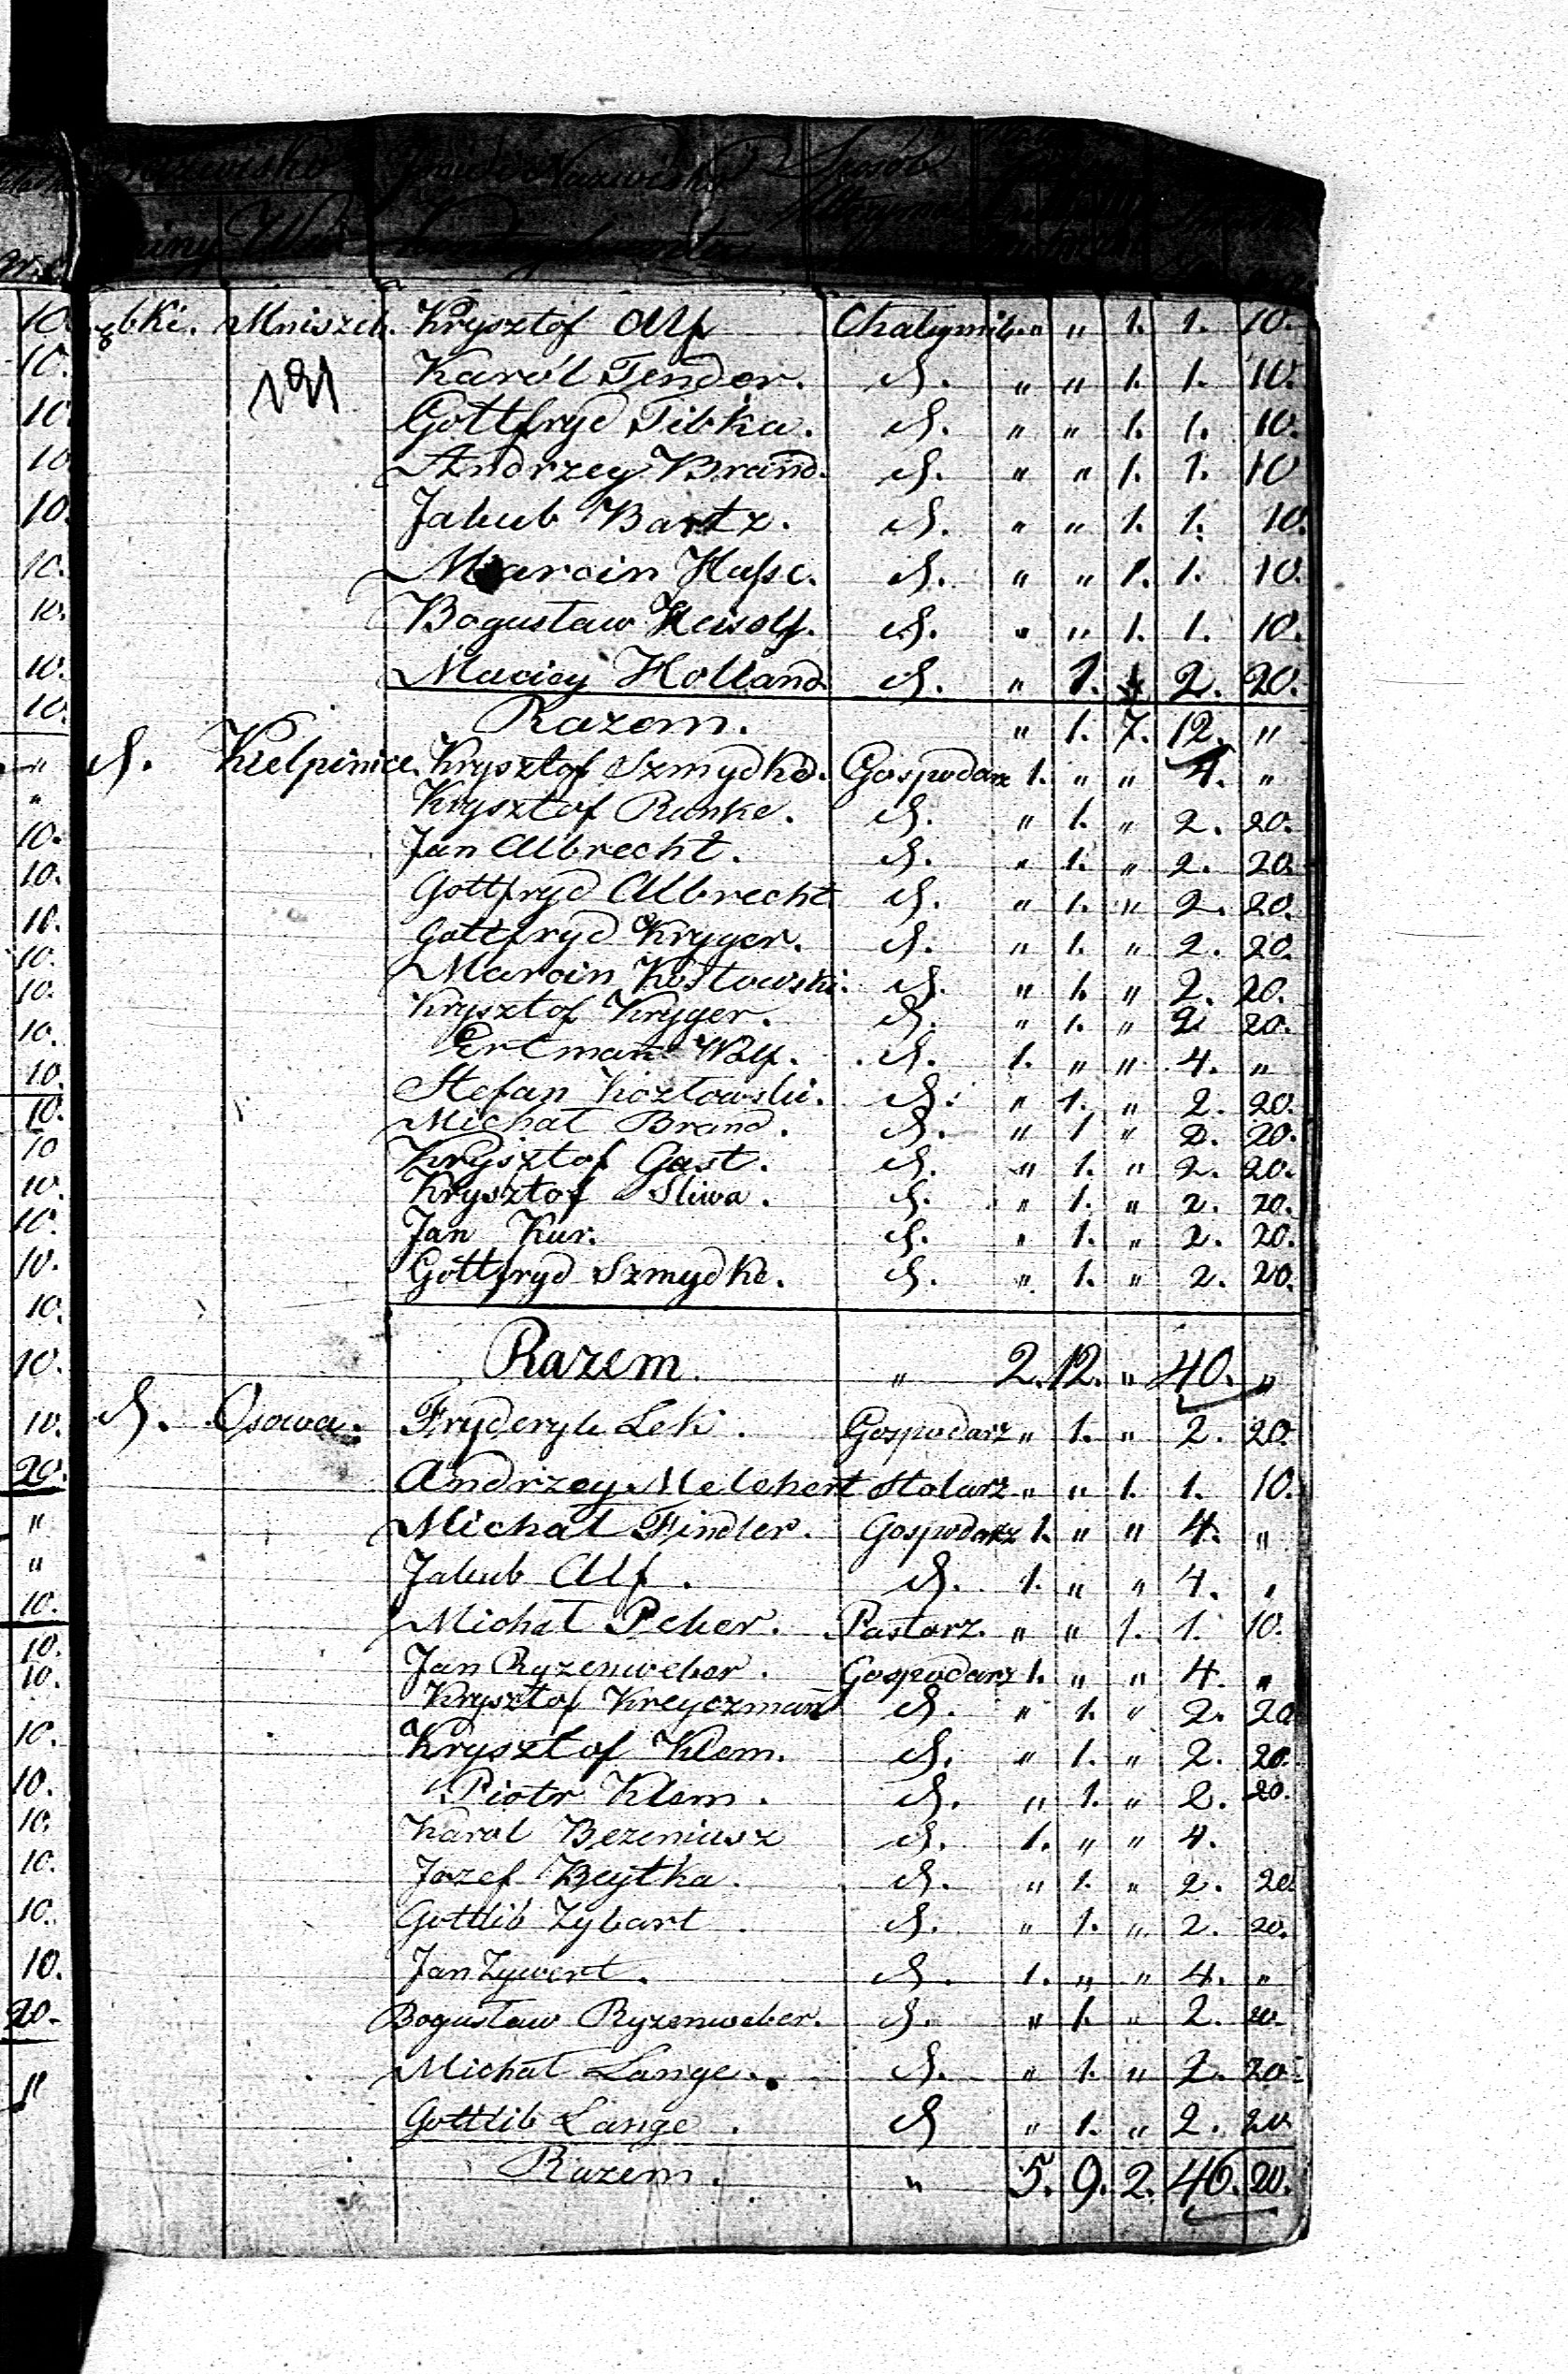 Nazwisko Jmie i Nazwisko Sposób
Wsi
10. ębki. Mniszek. Krysztof Alf Chałupnik „ „ 1. 1. 10.
10. 191 Karól Tender. d. „ „ 1. 1. 10.
10. Gottfryd Tibka. d. „ „ 1. 1. 10.
10 Andrzey Brand. d. „ „ 1. 1. 10
10. Jakub Bartz. d. „ „ 1. 1. 10.
10. Marcin Haſse. d. „ „ 1. 1. 10.
10. Bogusław d. „ „ 1. 1. 10.
10. Maciey Holland d. „ 1. 2. 20.
10. Razem. „ 1. 7. 12. „
„ d. Kiełpinice. Krysztof Szmydke. Gospodarz 1. „ „ 4. „
„ Krysztof Runke. d. „ 1. „ 2. 20.
10. Jan Albrecht. d. „ 1. „ 2. 20.
10. Gottfryd Albrecht d. „ 1. „ 2. 20.
10. Gottfryd Kryger. d. „ 1. „ 2. 20.
10. Marcin Kosłowski. d. „ 1. „ 2. 20.
10. Krysztof Kryger. d. „ 1. „ 2 20.
10. Ertman Wolf. d. 1. „ „ 4. „
10. Stefan Kozłowski. d. „ 1. „ 2. 20.
10. Michał Brand. d. „ 1 „ 2. 20.
10 Krysztof Gast. d. „ 1. „ 2. 20.
10. Krysztof Sliwa. d. „ 1. „ 2. 20.
10. Jan Kur. d. „ 1. „ 2. 20.
10. Gottfryd Szmydke. d. „ 1. „ 2. 20.
10.
10. Razem. „ 2. 12. „ 40. „
10. d. Osowa. Fryderyk Lek. Gospodarz „ 1. „ 2. 20.
20. Andrzey Melchert Stolarz „ „ 1. 1. 10.
„ Michał Findler. Gospodarz 1. „ „ 4. „
„ Jakub Alf. d. 1. „ „ 4. „
10. Michał Peker. Pastarz. „ „ 1. 1. 10.
10. Jan Ryzenweber. Gospodarz 1. „ „ 4. „
10. Krysztof Kreyczman d. „ 1. „ 2. 20
10. Krysztof Klem. d. „ 1. „ 2. 20.
10. Piotr Klem. d. „ 1. „ 2. 20.
10. Karol Bezeniusz d. 1. „ „ 4.
10. Jozef Beytka. d. „ 1. „ 2. 20.
10. Gottlib Zybart. d. „ 1. „ 2. 20.
10. Jan Zywert. d. 1. „ „ 4. „
20. Bogusław Ryzenweber. d. „ 1. „ 2. 20.
„ Michał Lange. d. „ 1. „ 2. 20.
Gottlib Lange. d „ 1. „ 2. 20
Razem. „ 5. 9. 2. 46. 20.